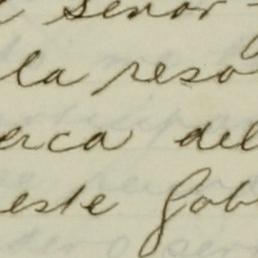 señor
la reso
erca del
este Gob